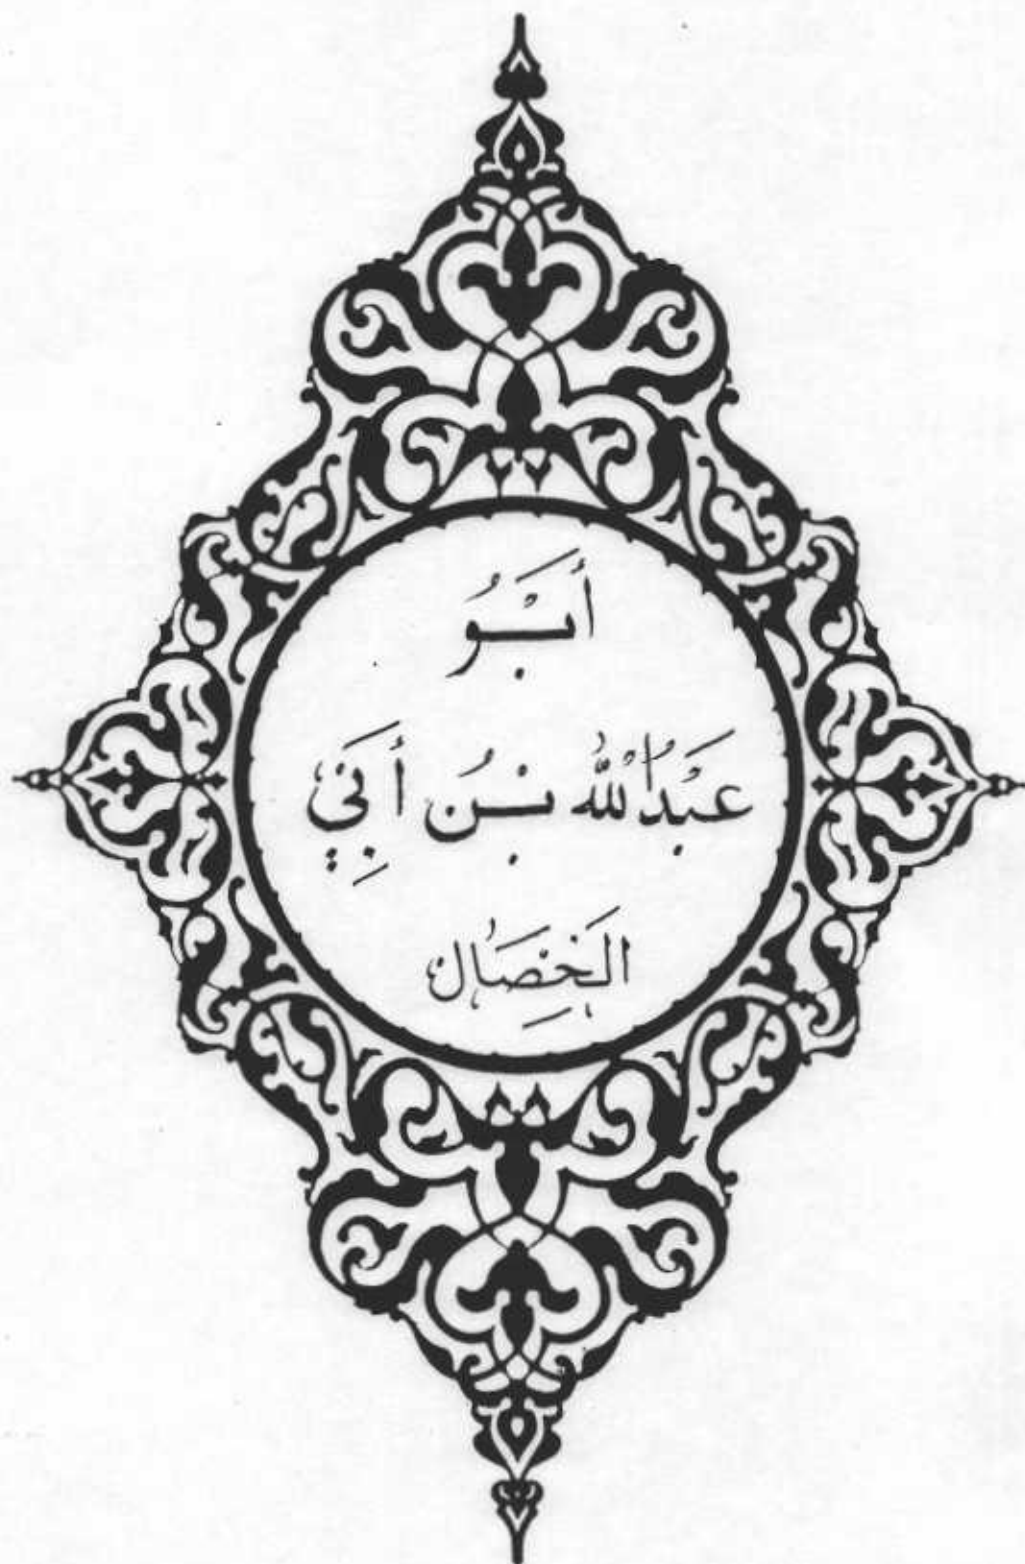 أَبْوُ
عَبْدُ اللّٰه بْنُ أَبَيِ
الْخِصَال